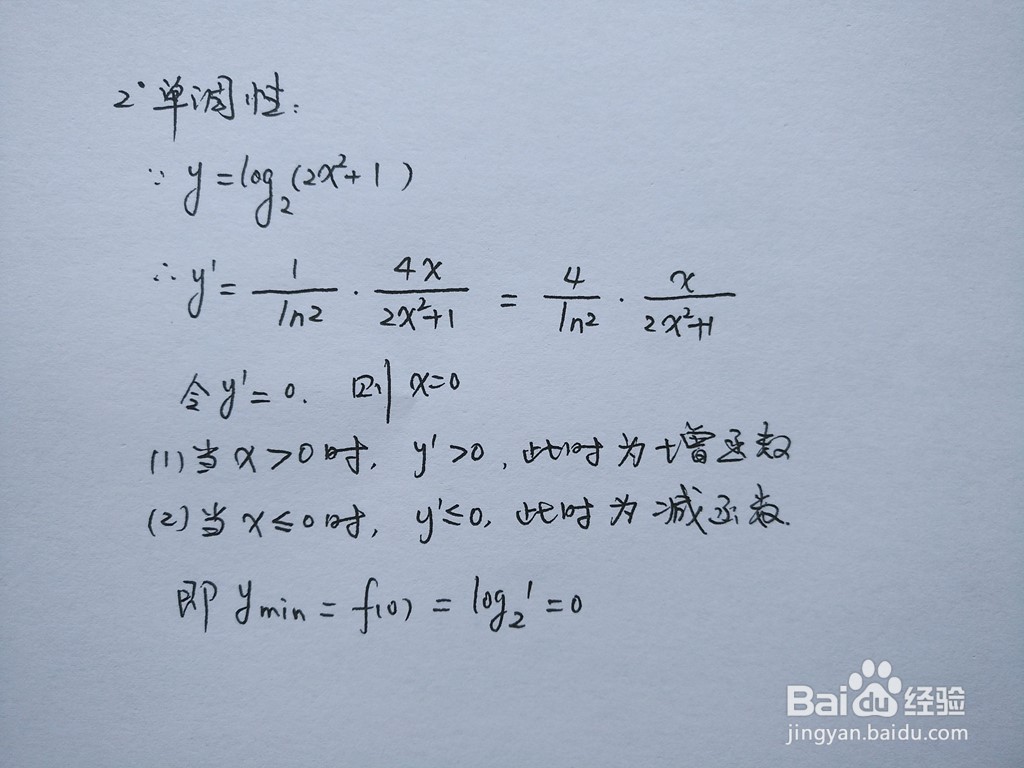 2° 单调性:
∵ y = log₂(2x²+1)
∴ y' = 1/ln2 · 4x/(2x²+1) = 4/ln2 · x/(2x²+1)
令 y' = 0. 则 x=0
(1) 当 x > 0 时, y' > 0, 此时为增函数
(2) 当 x ≤ 0 时, y' ≤ 0, 此时为减函数.
即 ymin = f(0) = log₂1 = 0
Baidu经验
jingyan.baidu.com